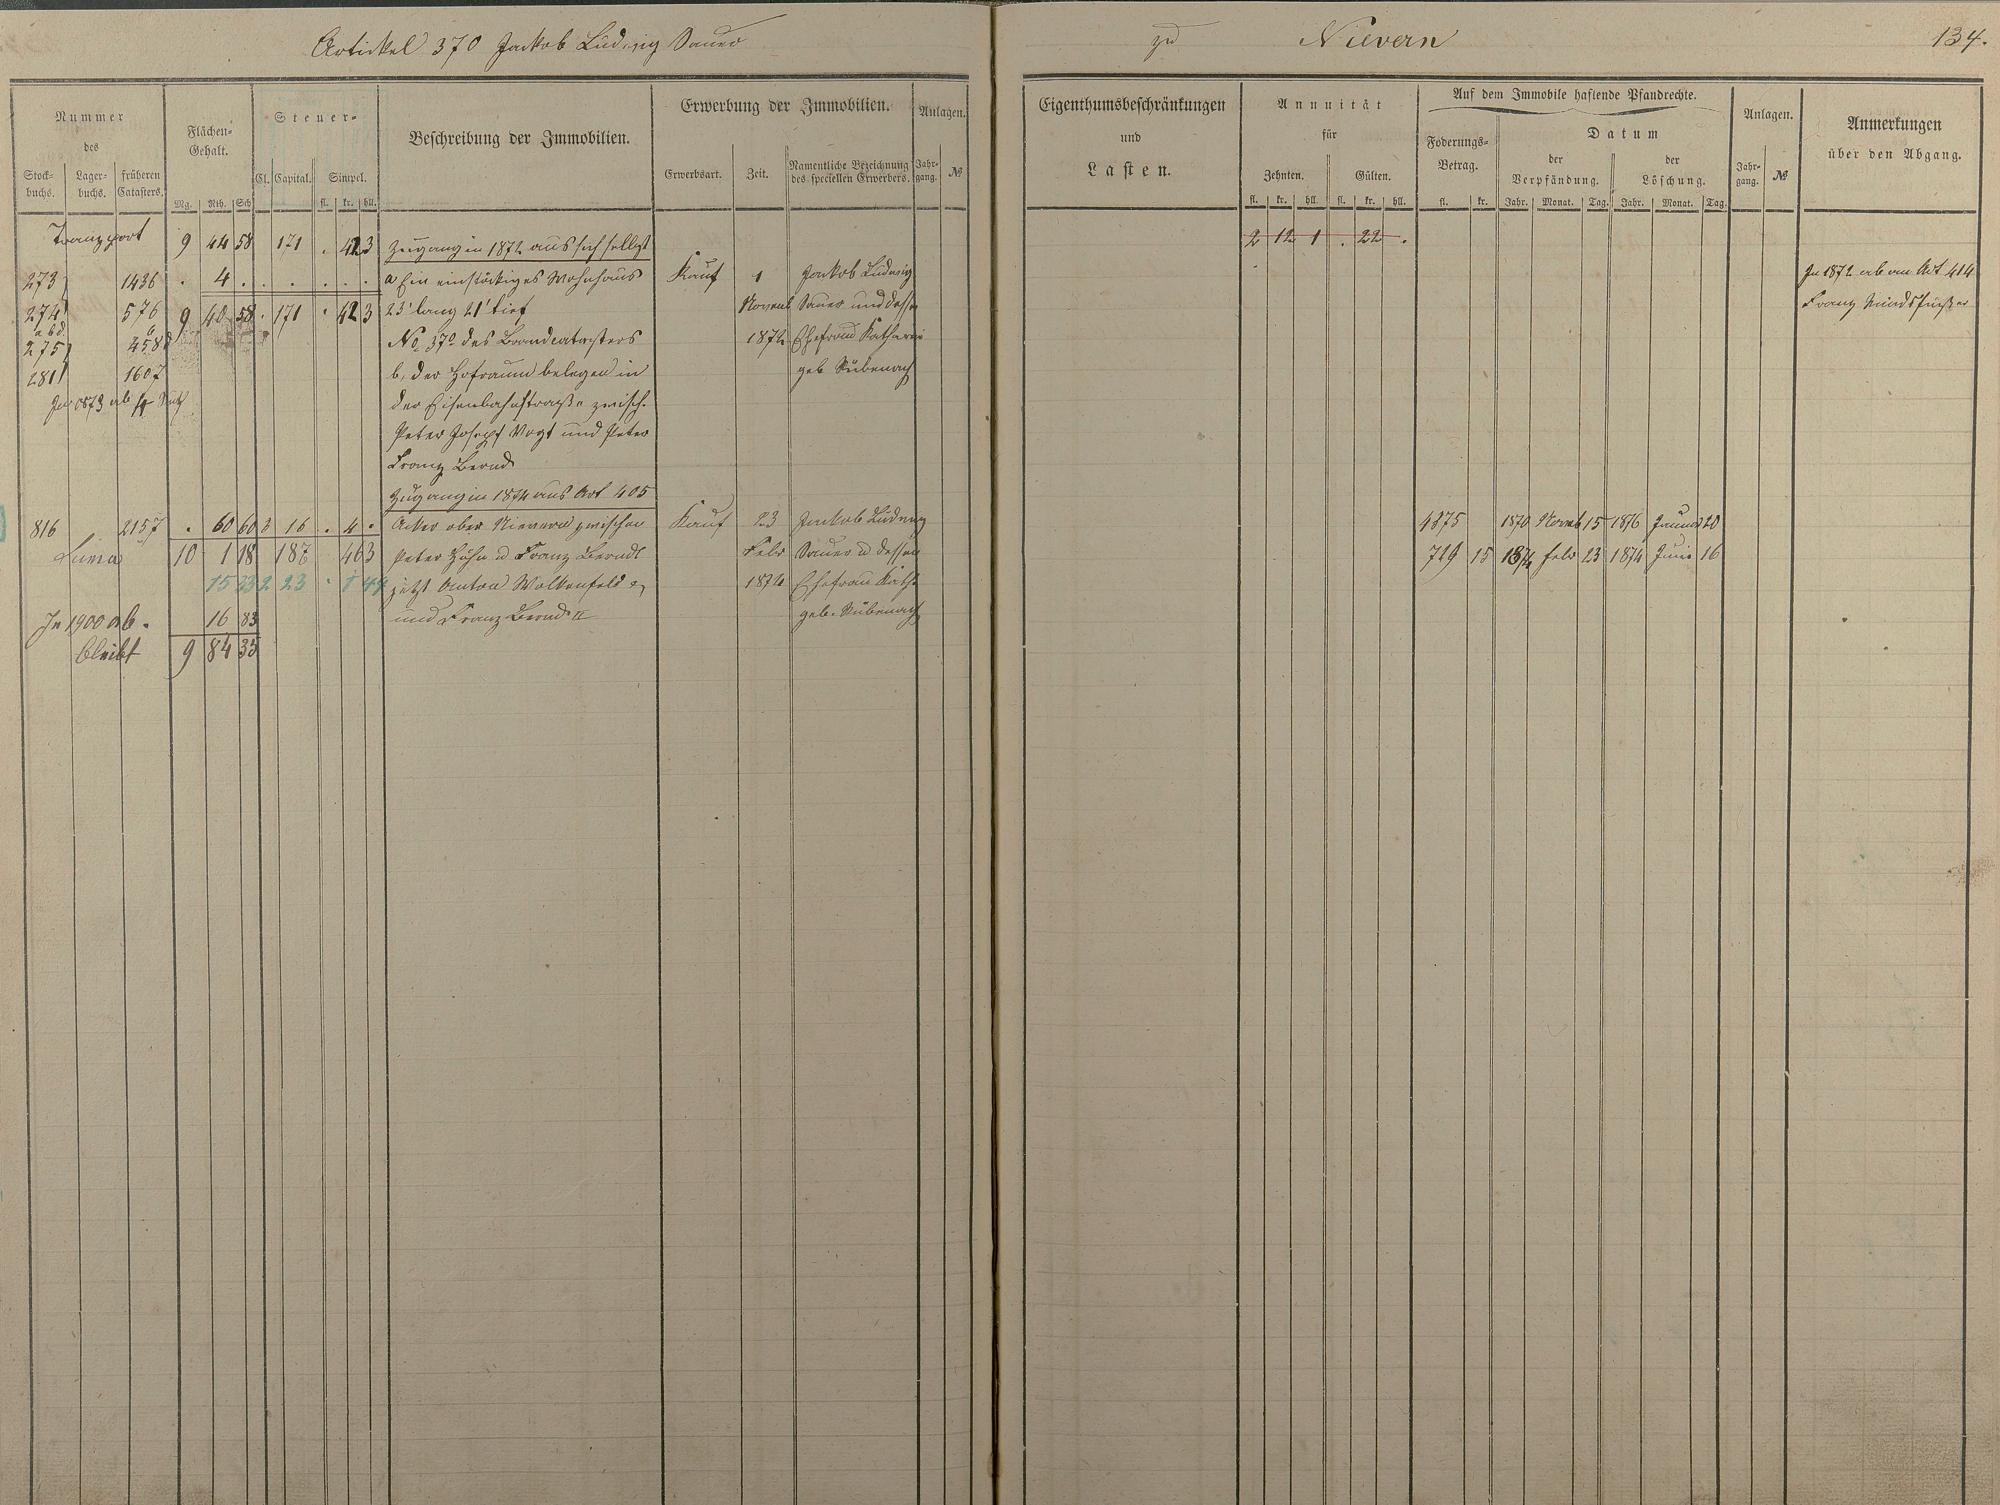 Artickel 370 Jackob Ludwig Sauer
zu Nievern
134.
Nummer
des
Stock-
buchs.
Lager-
buchs.
früheren
Catasters.
Flächen-
Gehalt.
Mg. Rth. Sch.
Steuer-
Cl. Capital. Simpel.
fl. kr. hll.
Beschreibung der Immobilien.
Erwerbung der Immobilien.
Erwerbsart. Zeit. Namentliche Bezeichnung
des speciellen Erwerbers.
Anlagen.
Jahr-
gang. №
Eigenthumsbeschränkungen
und
Lasten.
Annuität
für
Zehnten. Gülten.
fl. kr. hll. fl. kr. hll.
Auf dem Immobile haftende Pfandrechte.
Foderungs-
Betrag.
fl. kr.
Datum
der
Verpfändung.
der
Löschung.
Jahr. Monat. Tag. Jahr. Monat. Tag.
Anlagen.
Jahr-
gang. №
Anmerkungen
über den Abgang.
Transport 9 44 58 171 . 42 3 Zugang in 1872 aus sich selbst
2 12 1 . 22 .
273 1436 . 4 . . . . . . a Ein einstöckiges Wohnhaus Kauf 1 Jackob Ludwig
In 1872 ab an Art 414
274 576 9 40 58 . 171 . 42 3 23' lang 21' tief Novemb Sauer und dessen
Franz
a b d
275 458 No 370 des Brandcatasters 1872 Ehefrau Katharina
281 1607 b, der Hofraum belegen in geb Rübenach
der Eisenbahnstraße zwisch.
Peter Josepf Vogt und Peter
Franz Bernd
Zugang in 1874 aus Art 405
816 2157 . 60 60 3 16 . 4 . Acker ober Nievern zwischen Kauf 23 Jackob Ludwig
4375 1870 Novemb 15 1876 Januar 20
Suma 10 1 18 187 46 3 Peter Höhn u Franz Berndt Febr Sauer u dessen
729 15 1874 Febr 23 1874 Juni 16
15 23 2 23 . 1 44 jetzt Anton Wolkenfeld 1874 Ehefrau Kath.
In 1900 ab. 16 83 und Franz Bernd II geb. Rübenach
bleibt 9 84 35